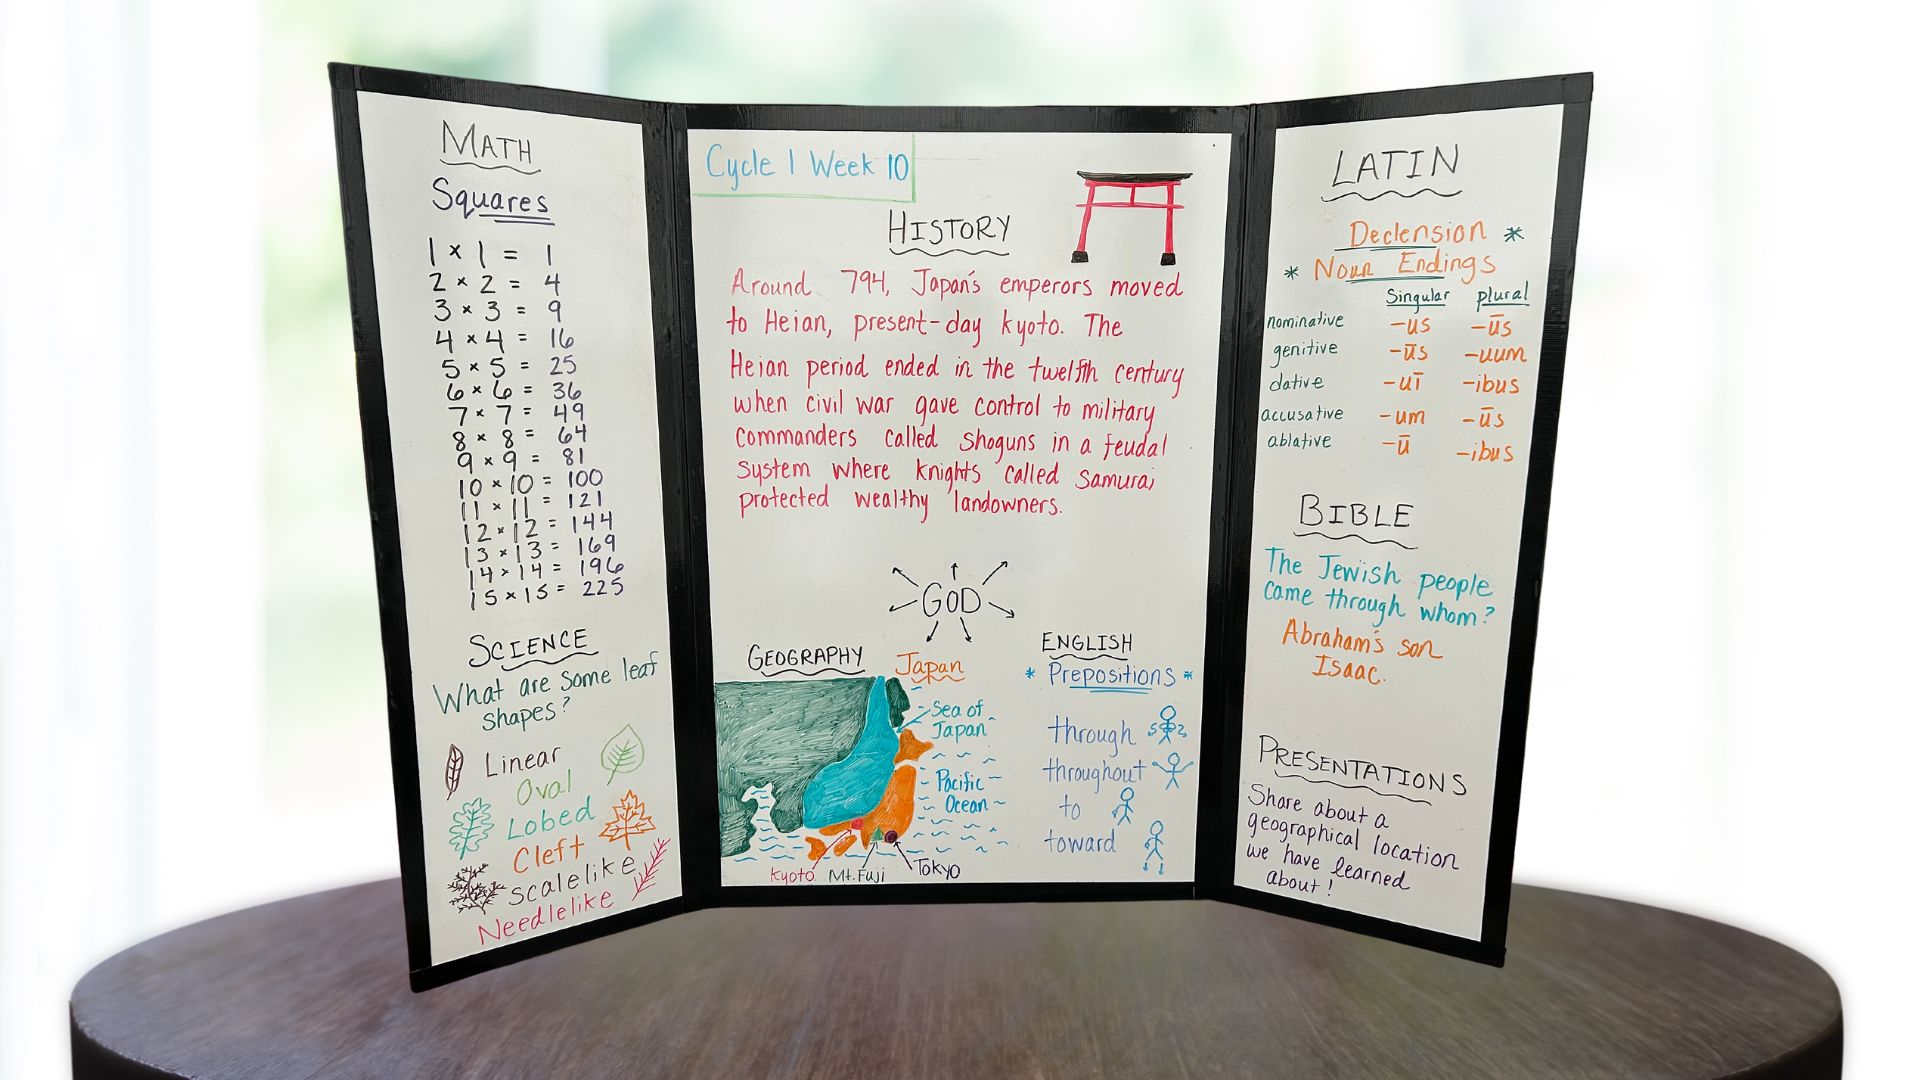 MATH
Squares
1 × 1 = 1
2 × 2 = 4
3 × 3 = 9
4 × 4 = 16
5 × 5 = 25
6 × 6 = 36
7 × 7 = 49
8 × 8 = 64
9 × 9 = 81
10 × 10 = 100
11 × 11 = 121
12 × 12 = 144
13 × 13 = 169
14 × 14 = 196
15 × 15 = 225
SCIENCE
What are some leaf
shapes?
Linear
Oval
Lobed
Cleft
Scalelike
Needlelike
Cycle 1 Week 10
HISTORY
Around 794, Japan's emperors moved
to Heian, present-day Kyoto. The
Heian period ended in the twelfth century
when civil war gave control to military
commanders called Shoguns in a feudal
system where knights called Samurai
protected wealthy landowners.
GOD
GEOGRAPHY
Japan
Sea of
Japan
Pacific
Ocean
Kyoto Mt. Fuji Tokyo
ENGLISH
* Prepositions *
through
throughout
to
toward
LATIN
Declension *
* Noun Endings
Singular plural
nominative -us -ūs
genitive -ūs -uum
dative -uī -ibus
accusative -um -ūs
ablative -ū -ibus
BIBLE
The Jewish people
came through whom?
Abraham's son
Isaac.
PRESENTATIONS
Share about a
geographical location
we have learned
about!